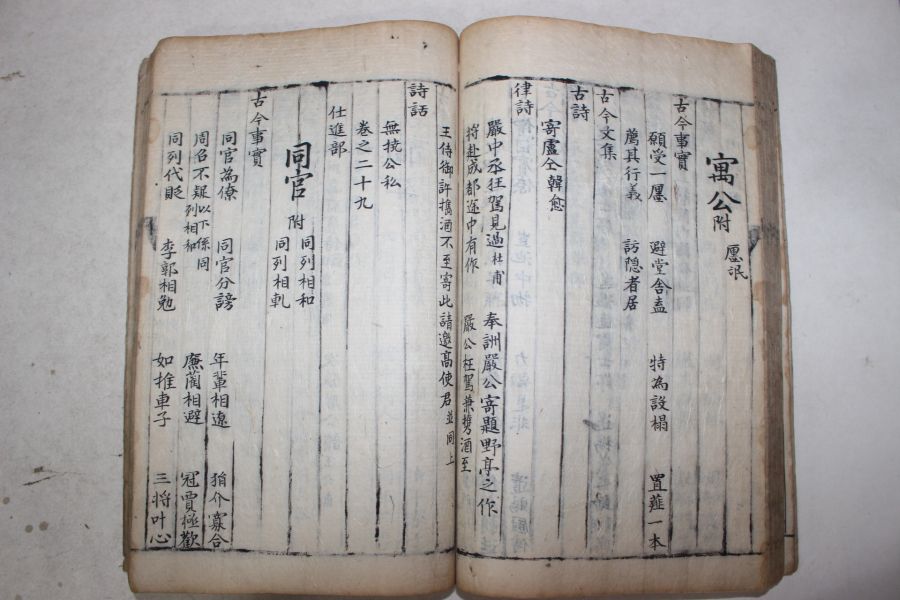 寓公 附 愿氓
古今事實
願受一廛 避堂舍盍 特為設榻 置薤一本
薦其行義 訪隐者居
古今文集
古詩
寄盧仝 韓愈
律詩
嚴中丞枉駕見過 杜甫 奉詶嚴公寄題野亭之作
將赴成都途中有作 嚴公枉駕兼携酒至
王侍御許携酒不至寄此請邀高使君並同上
詩話
無挾公私
卷之二十九
仕進部
同官 附 同列相和 同列相軋
古今事實
同官為僚 同官分謗 年輩相遼 猏介寡合
周召不疑 以下係同列相和 廉藺相避 冦賈極歡
同列代貶 李郭相勉 如推車子 三将叶心